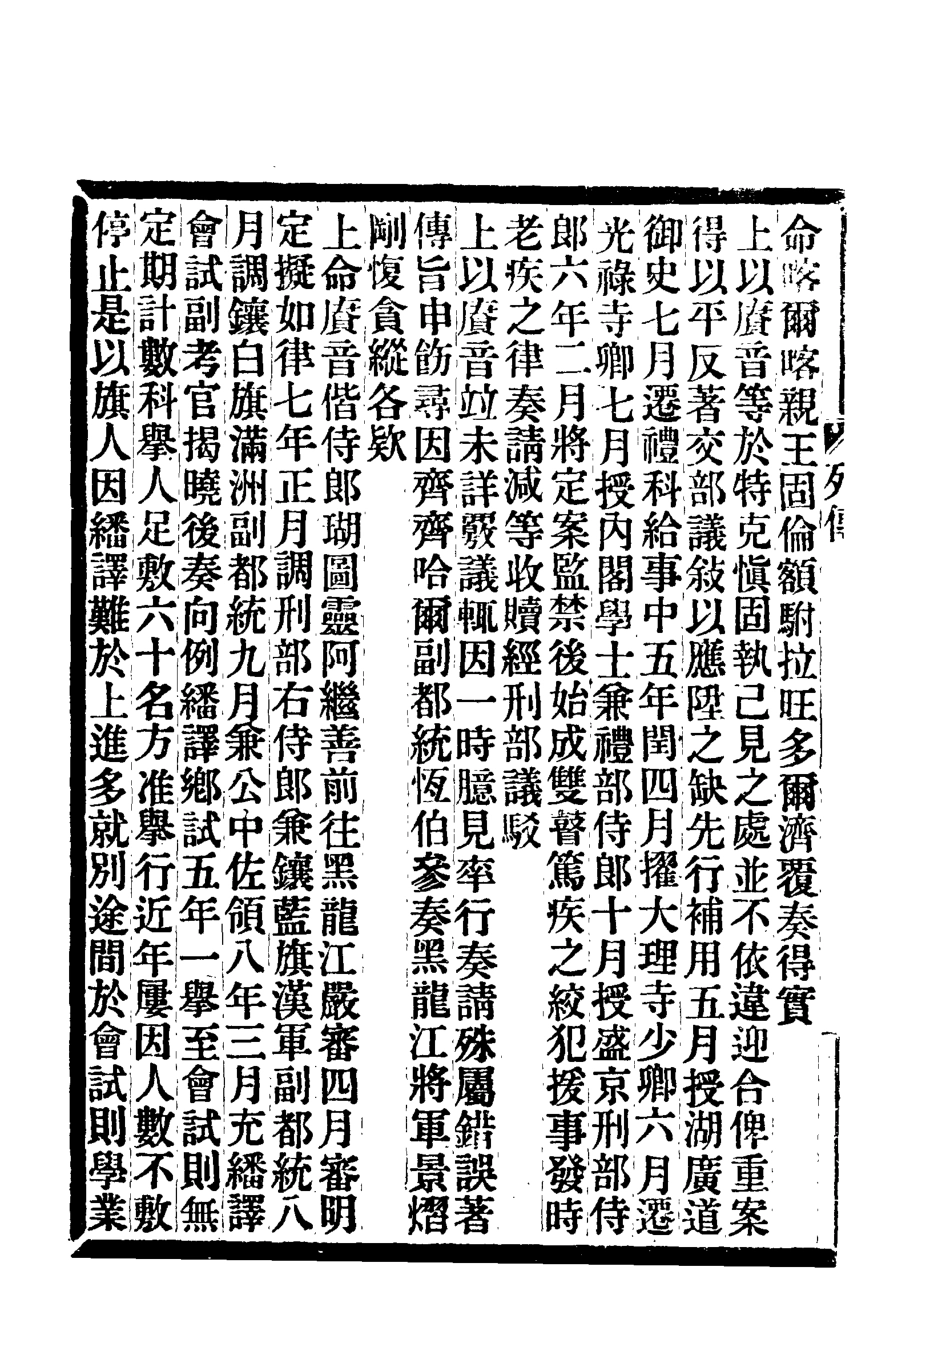 列傳
命喀爾喀親王固倫額駙拉旺多爾濟覆奏得實
上以賡音等於特克愼固執己見之處並不依違迎合俾重案
得以平反著交部議敍以應陞之缺先行補用五月授湖廣道
御史七月遷禮科給事中五年閏四月擢大理寺少卿六月遷
光祿寺卿七月授內閣學士兼禮部侍郎十月授盛京刑部侍
郎六年二月將定案監禁後始成雙瞽篤疾之絞犯援事發時
老疾之律奏請減等收贖經刑部議駁
上以賡音竝未詳覈議輒因一時臆見率行奏請殊屬錯誤著
傳旨申飭尋因齊齊哈爾副都統恆伯參奏黑龍江將軍景熠
剛愎貪縱各欵
上命賡音偕侍郎瑚圖靈阿繼善前往黑龍江嚴審四月審明
定擬如律七年正月調刑部右侍郎兼鑲藍旗漢軍副都統八
月調鑲白旗滿洲副都統九月兼公中佐領八年三月充繙譯
會試副考官揭曉後奏向例繙譯鄉試五年一舉至會試則無
定期計數科舉人足敷六十名方准舉行近年屢因人數不敷
停止是以旗人因繙譯難於上進多就別途間於會試則學業